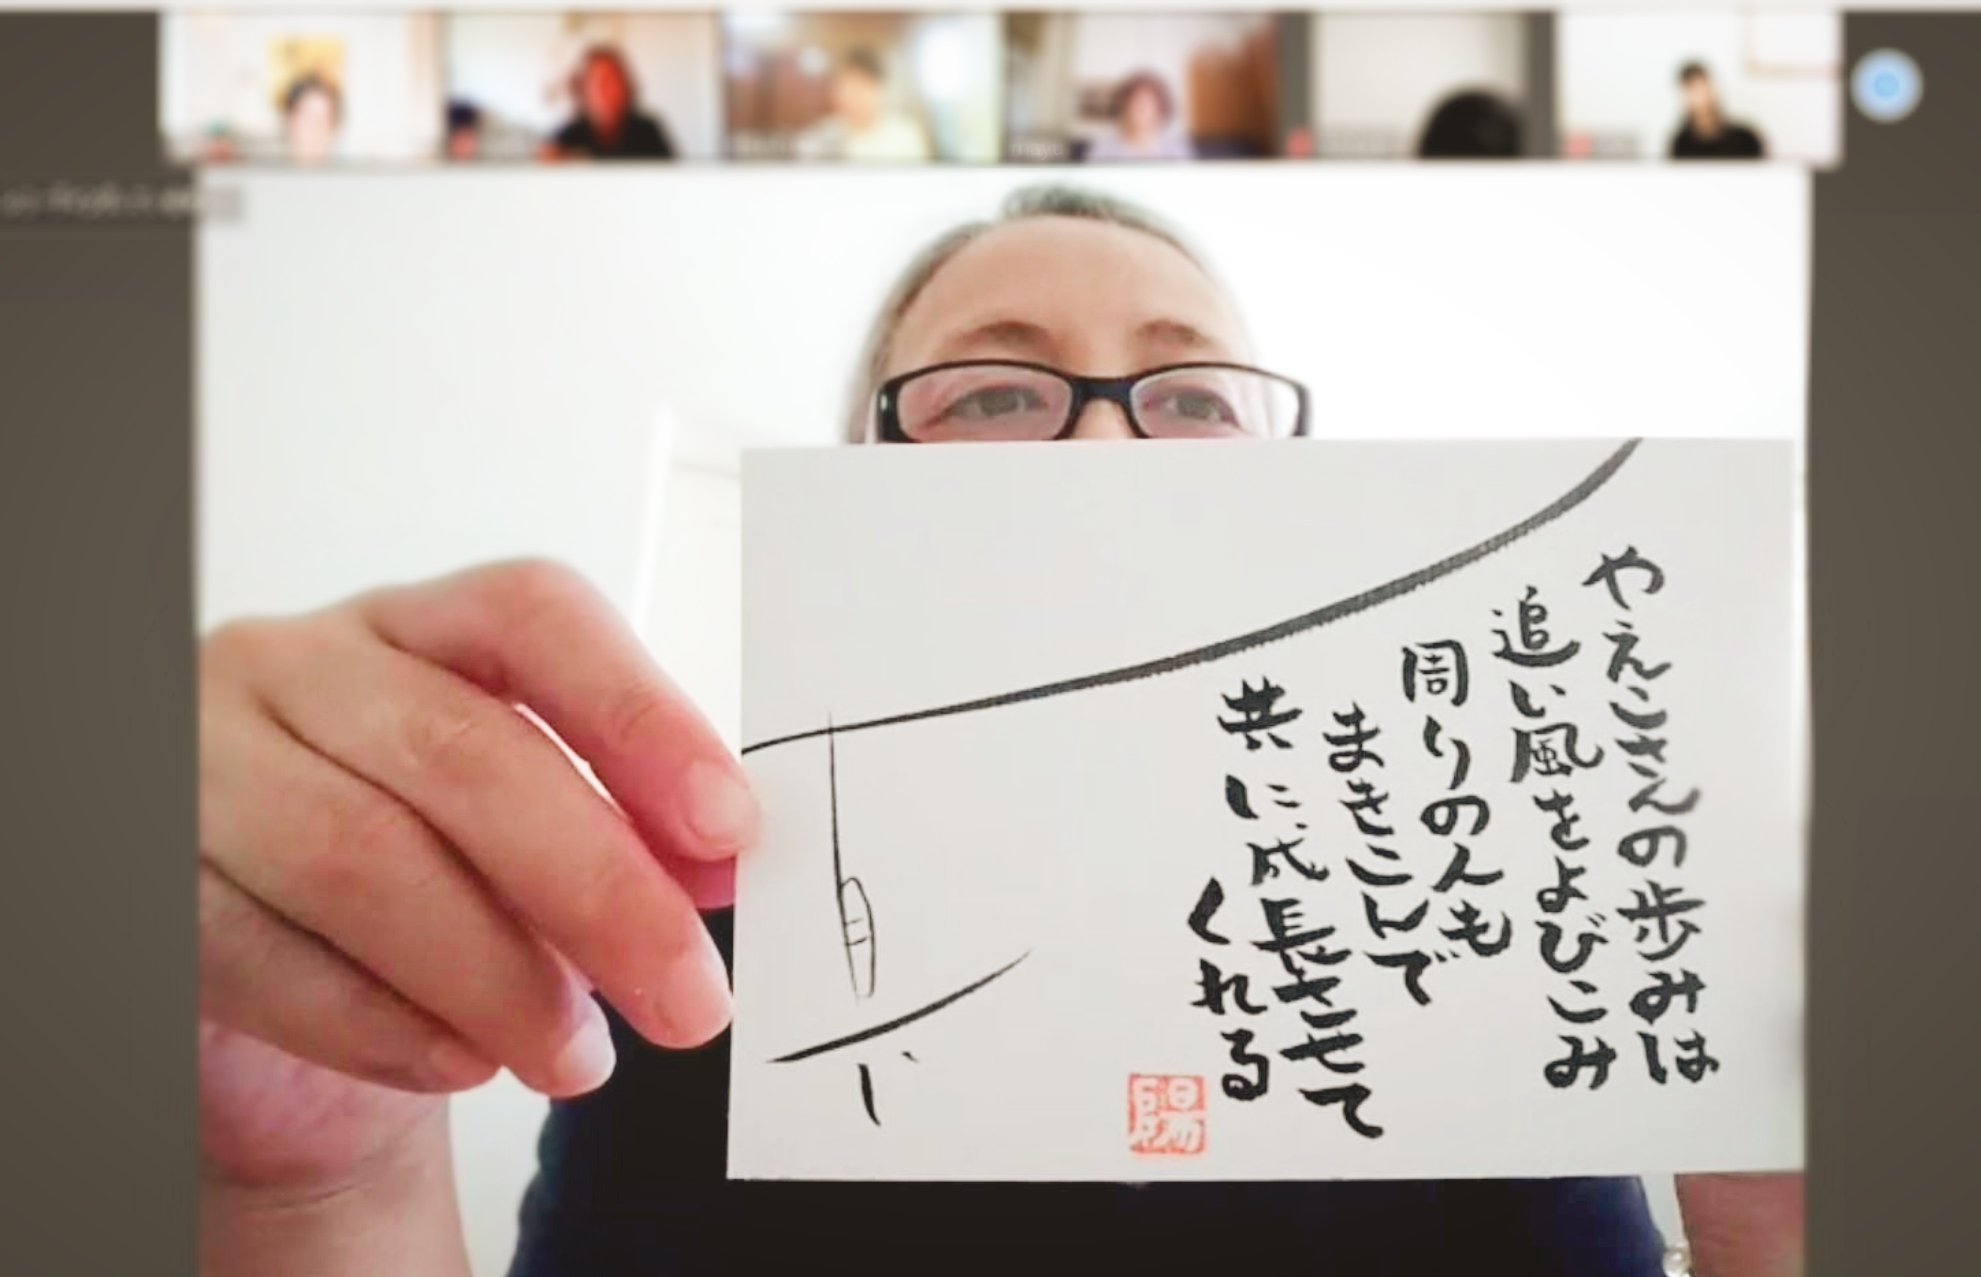 やえこさんの歩みは
追い風をよびこみ
周りの人も
まきこんで
共に成長させて
くれる